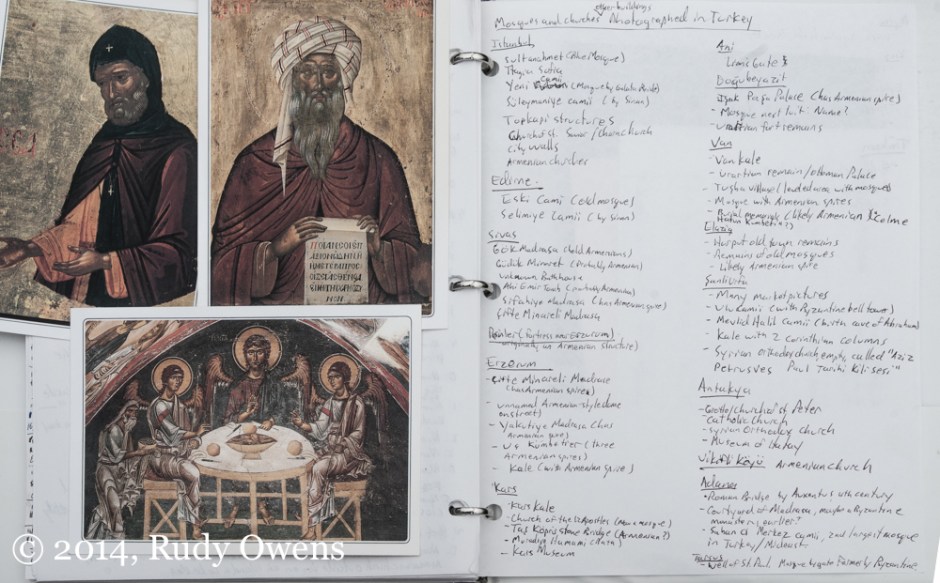 Mosques and churches other buildings Photographed in Turkey
Istanbul
Sultanahmet (Blue Mosque)
Hagia Sofia
Yeni Camii (Mosque by Galata Bridge)
Süleymaniye camii (by Sinan)
Topkapi structures
Church of St. Savior / Chora church
City walls
Armenian churches
Edirne
Eski Cami (old mosque)
Selimiye Camii (by Sinan)
Sivas
Gök Madrasa (build Armenians)
Güdük Minaret (Probably Armenian)
Ahi Emir (probably Armenian)
Sifahiye Madrasa (has Armenian spire)
Çifte Minareli Madrasa
(Fortress near Erzurum)
- originally an Armenian structure)
Erzerum
- Çifte Minareli Medrase
(has Armenian spires)
- unnamed Armenian-style dome
on street)
- Yakutiye Madrasa (has
Armenian spire)
- Üç Kümbetler (three
Armenian spires)
- Kale (with Armenian spire)
Kars
- Kars Kale
- Church of the 12 Apostles (now a mosque)
- Taş Köprü stone Bridge (Armenian?)
- Kars Museum
Ani
Limis Gate
Doğubeyazit
Işak Paşa Palase (has Armenian spire)
- Mosque next to it. Name?
- urartian fort remains
Van
- Van Kale
- urartian remain / ottoman Palase
- Tusba village (land edarea with mosques
- Mosque with Armenian spires
- Burial memorials (likely Armenian
Hatun Kumbetia?)
Elazig
- Harput old town remains
- Remains of old mosques
- Likely Armenian spire
Sanliurfa
- Many market pictures
- Ulu Camii (with Byzantine bell tower)
- Mevlid Halil Camii (with cave of Abraham)
- Kale with 2 corinthian columns
- Syrian orthodox church, empty, called "Aziz
Petrus ves Paul Tarihi Kilisesi"
Antakya
- Grotto/church of St Peter
- Catholic church
- Syrian Orthodox church
- Museum of Hatay
Vikifli Köyü Armenian church
Adana
- Roman Bridge by Auxentus 4th century
- Courtyard of Madrasa, maybe a Byzantine
monastery earlier?
- Saban ci Merkez camii, 2nd largest mosque
in Turkey/Mideast
Tarsus
- Well of St. Paul. Mosque by gate formerly Byzantine
© 2014, Rudy Owens